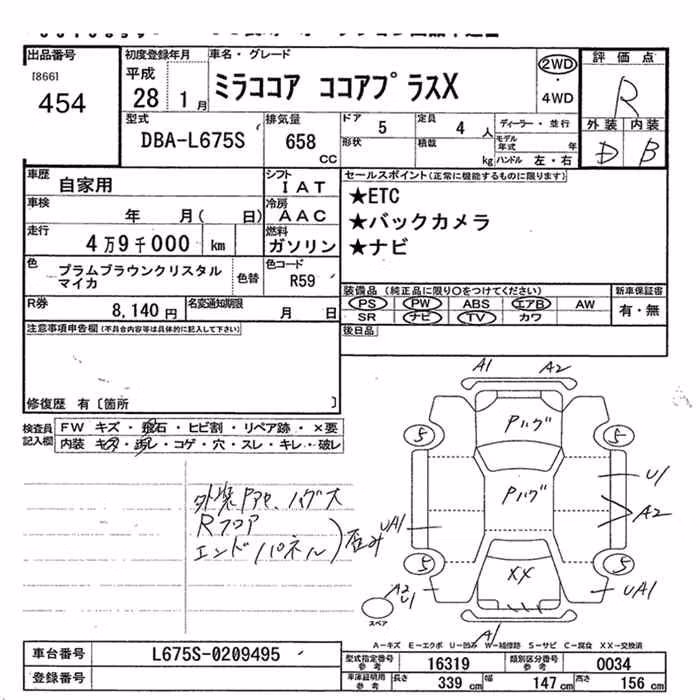 出品番号
[866]
454
初度登録年月
平成
28 1月
車名・グレード
ミラココア ココアプラスX
2WD
・
4WD
評価点
R
外装 内装
D B
型式
DBA-L675S
排気量
658 CC
ドア 5
定員 4 人
形状
積載 kg
ディーラー・並行
モデル年式 年
ハンドル 左・右
車歴
自家用
シフト
IAT
車検
年 月( 日)
冷房
AAC
走行
4万9千000 km
燃料
ガソリン
色
プラムブラウンクリスタル
マイカ
色替
色コード
R59
R券
8,140 円
名変通知期限
月 日
セールスポイント(正常に機能するものに限ります)
★ETC
★バックカメラ
★ナビ
装備品 (純正品に限り○をつけてください)
PS PW ABS エアB AW
SR ナビ TV カワ
新車保証書
有・無
後日品
注意事項申告欄(不具合内容等は具体的に記入して下さい)
修復歴 有〔箇所 〕
検査員
記入欄
FW キズ・飛石・ヒビ割・リペア跡・×要
内装 キズ・汚レ・コゲ・穴・スレ・キレ・破レ
外装
Rフロア
エンドパネル
歪み
A1 A2
Pハゲ
5 5
U1
Pハゲ
A2
UA1
5 5
XX
A2
U1
UA1
スペア
A1
A-キズ E-エクボ U-凹み W-補修跡 S-サビ C-腐食 XX-交換済
車台番号
L675S-0209495
登録番号
型式指定番号
参考
16319
類別区分番号
参考
0034
車庫証明用
参考
長さ 339 cm
幅 147 cm
高さ 156 cm